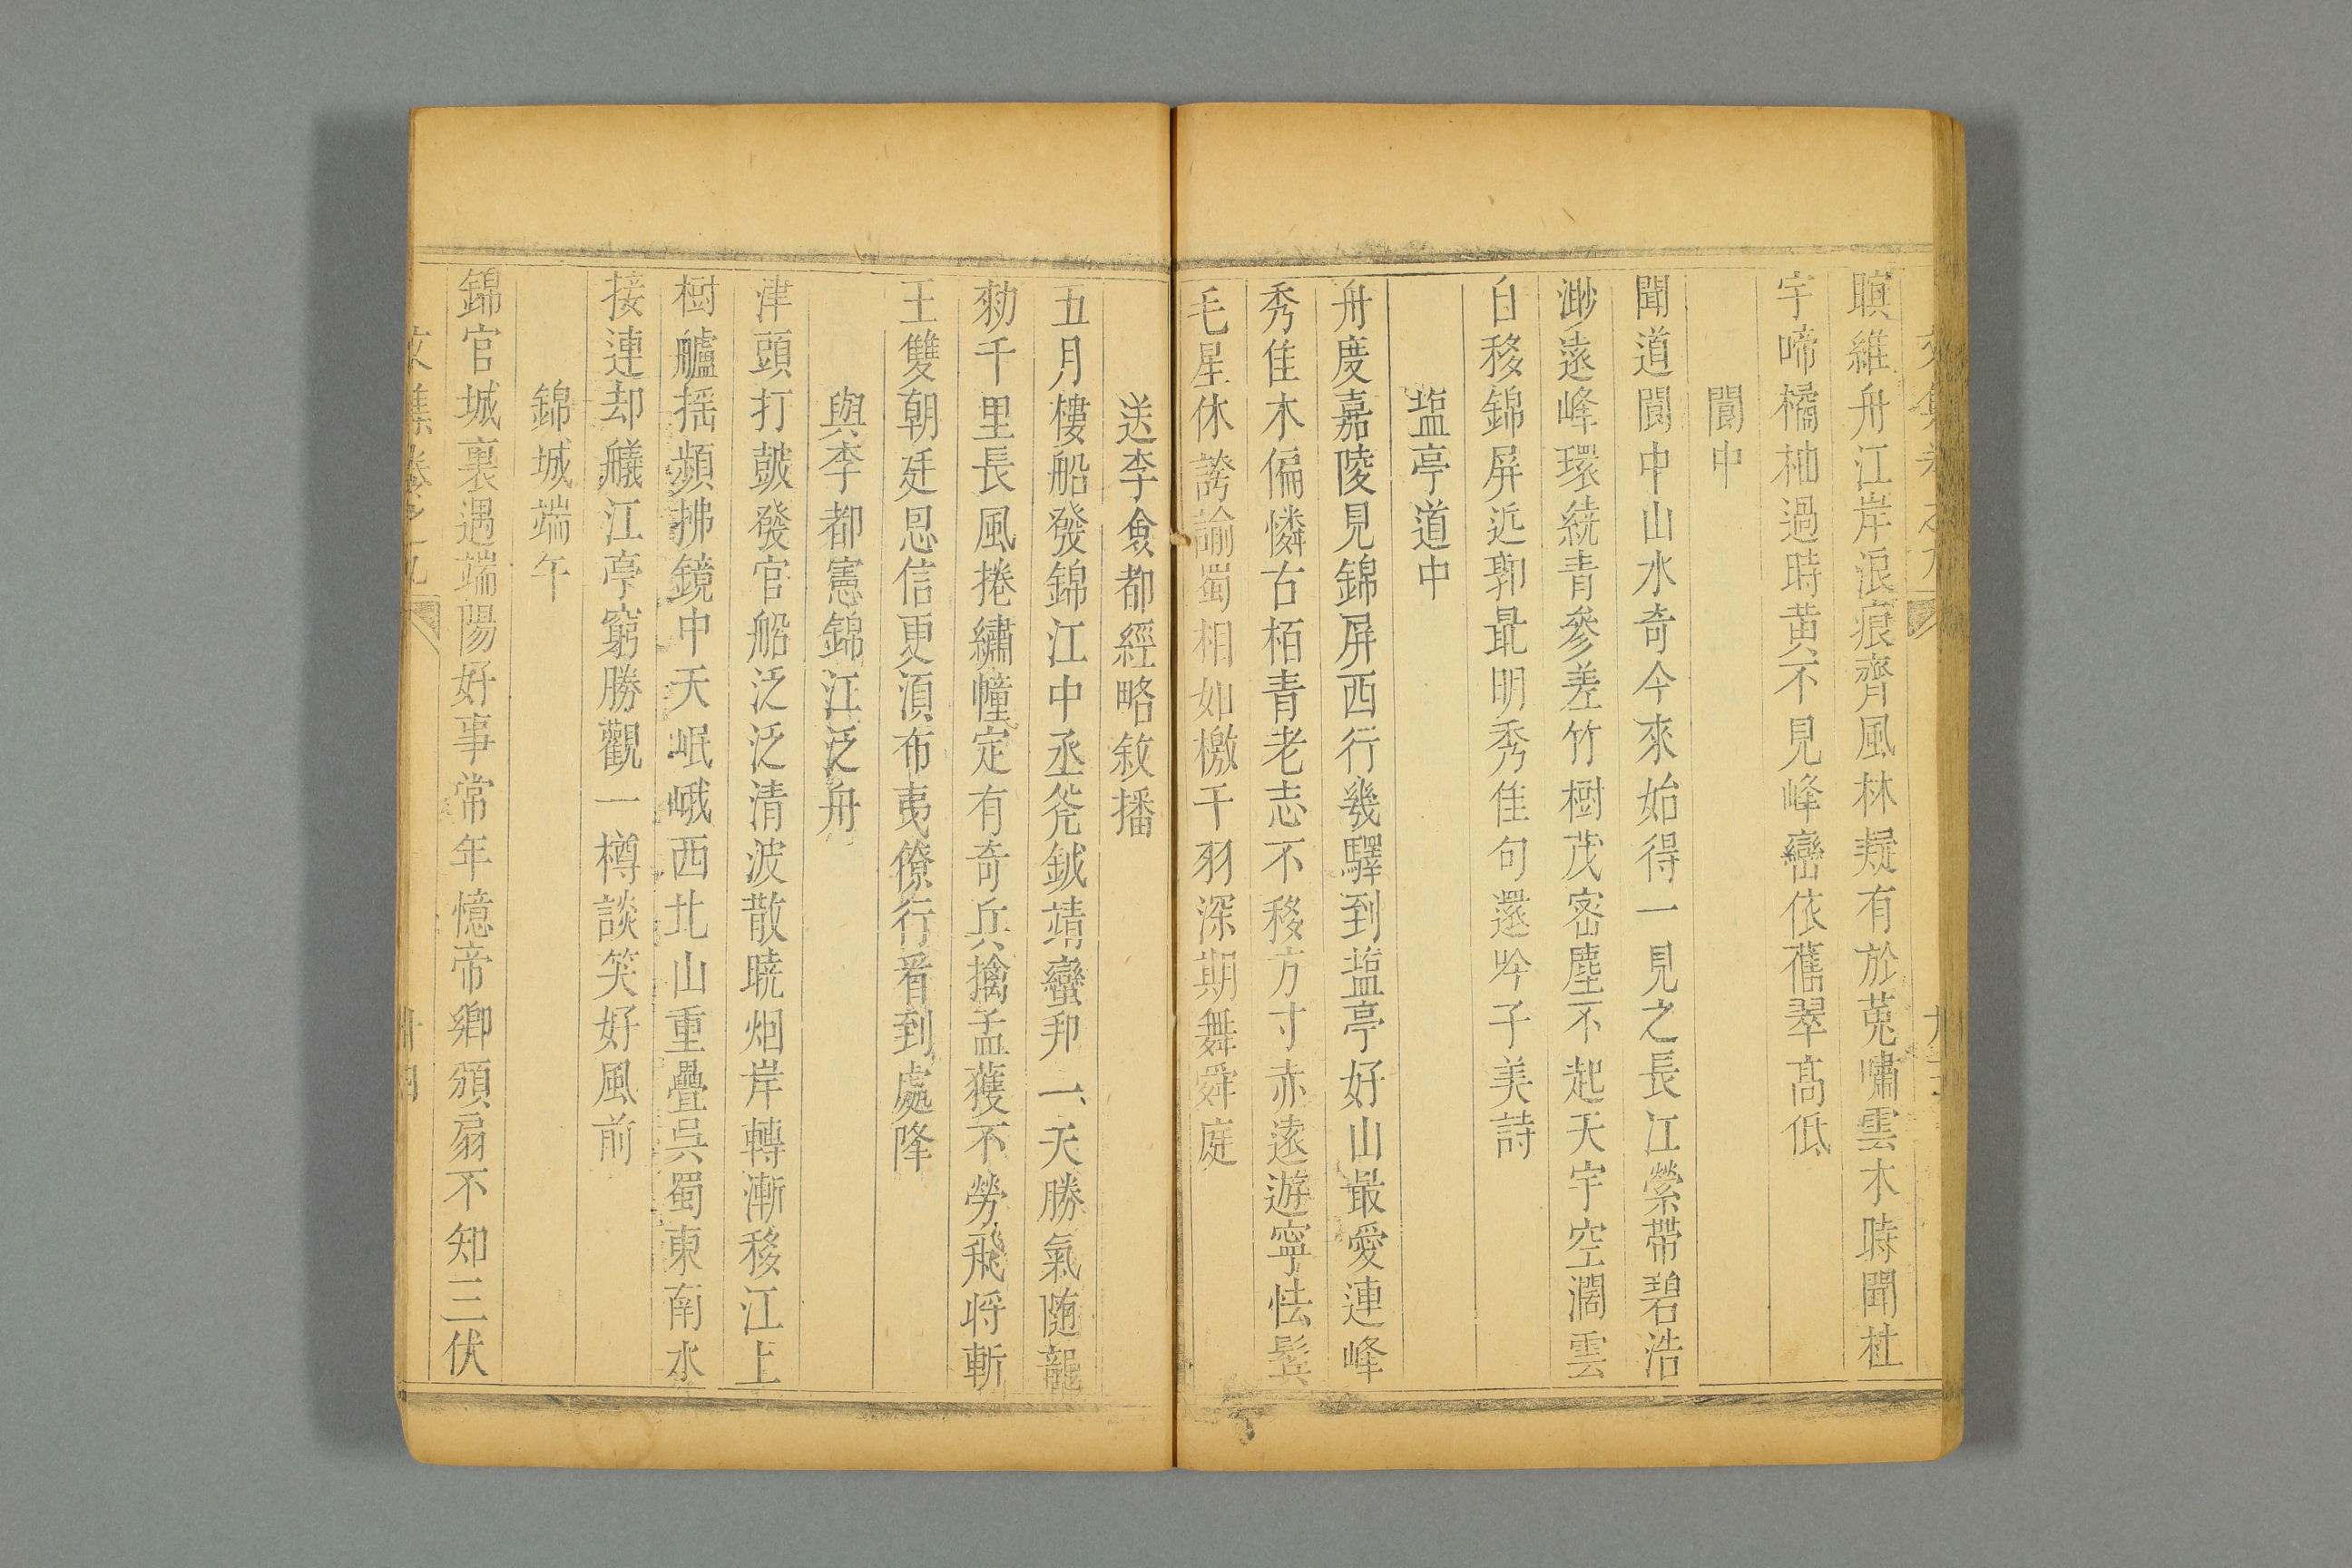 暝維舟江岸浪痕齊風林疑有於菟嘯雲木時聞杜
宇啼橘柚過時黄不見峰巒依舊翠高低
閬中
聞道閬中山水奇今來始得一見之長江縈帶碧浩
渺遠峰環繞青參差竹樹茂密塵不起天宇空濶雲
自移錦屏近郭最明秀佳句還吟子美詩
塩亭道中
舟度嘉陵見錦屏西行幾驛到塩亭好山最愛連峰
秀佳木偏憐古栢青老志不移方寸赤遠遊寧怯鬂
毛星休誇諭蜀相如檄干羽深期舞舜庭
送李僉都經略敘播
五月樓船發錦江中丞斧鉞靖蠻邦一天勝氣随龍
勑千里長風捲繡幢定有奇兵擒孟獲不勞飛将斬
王雙朝廷恩信更湏布夷僚行看到處降
與李都憲錦江泛舟
津頭打皷發官船泛泛清波散暁烟岸轉漸移江上
樹艫揺頻拂鏡中天岷峨西北山重疊吳蜀東南水
接連却艤江亭窮勝觀一樽談笑好風前
錦城端午
錦官城裏遇端陽好事常年憶帝鄉頒扇不知三伏
文集卷之九